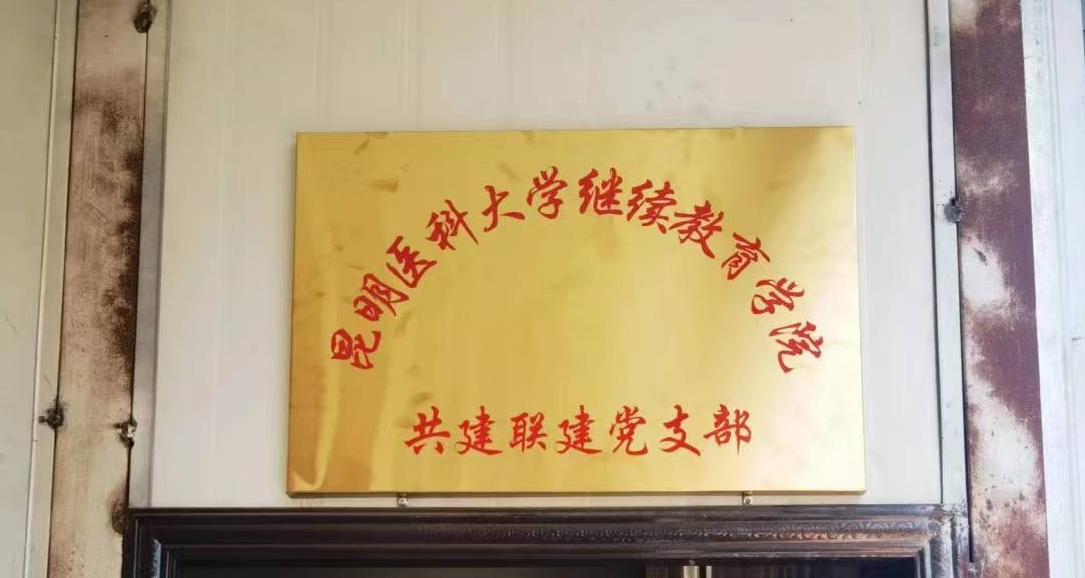 昆明医科大学继续教育学院
共建联建党支部